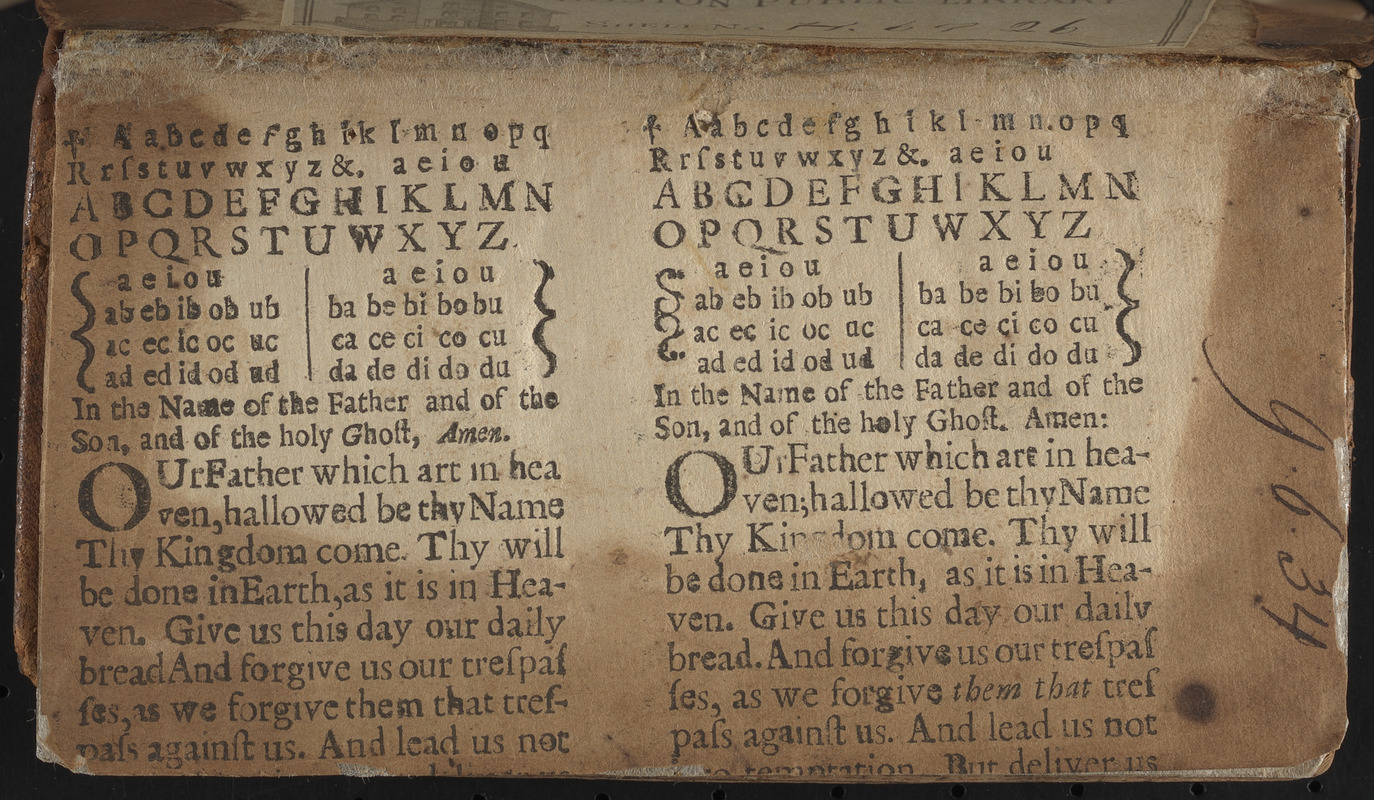 BOSTON PUBLIC LIBRARY
Shelf No.
✠ A a b c d e f g h i k l m n o p q
R r ſ s t u v w x y z &. a e i o u
A B C D E F G H I K L M N
O P Q R S T U W X Y Z.
a e i o u | a e i o u
ab eb ib ob ub | ba be bi bo bu
ac ec ic oc uc | ca ce ci co cu
ad ed id od ud | da de di do du
In the Name of the Father and of the
Son, and of the holy Ghoſt, Amen.
OUr Father which art in hea
ven, hallowed be thy Name
Thy Kingdom come. Thy will
be done in Earth, as it is in Hea-
ven. Give us this day our daily
bread And forgive us our treſpaſ
ſes, as we forgive them that treſ-
paſs againſt us. And lead us not
✠ A a b c d e f g h i k l m n. o p q
R r ſ s t u v w x y z &. a e i o u
A B C D E F G H I K L M N
O P Q R S T U W X Y Z
a e i o u | a e i o u
ab eb ib ob ub | ba be bi bo bu
ac ec ic oc uc | ca ce ci co cu
ad ed id od ud | da de di do du
In the Name of the Father and of the
Son, and of the holy Ghoſt. Amen:
OUr Father which art in hea-
ven; hallowed be thy Name
Thy Kingdom come. Thy will
be done in Earth, as it is in Hea-
ven. Give us this day our daily
bread. And forgive us our treſpaſ
ſes, as we forgive them that treſ
paſs againſt us. And lead us not
temptation. But deliver us
9.6.34